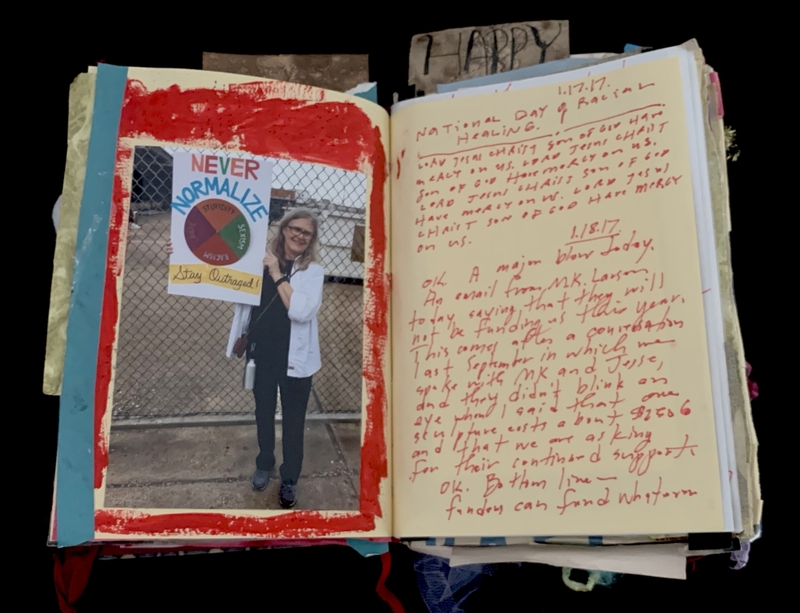 HAPPY
NEVER
NORMALIZE
STUPIDITY
SEXISM
RACISM
Stay Outraged!
1.17.17.
NATIONAL DAY of RACIAL
HEALING.
LORD JESUS CHRIST SON OF GOD HAVE
MERCY ON US. LORD JESUS CHRIST
SON OF GOD HAVE MERCY ON US.
LORD JESUS CHRIST SON OF GOD
HAVE MERCY ON US. LORD JESUS
CHRIST SON OF GOD HAVE MERCY
ON US.
1.18.17
OK. A major blow today.
An email from M.K. Larson
today saying that they will
not be funding us this year.
This comes after a conversation
last September in which we
spoke with MK and Jesse,
and they didn't blink an
eye when I said that one
sculpture costs about
and that we are asking
for their continued support.
OK. Bottom line—
funders can fund whatever